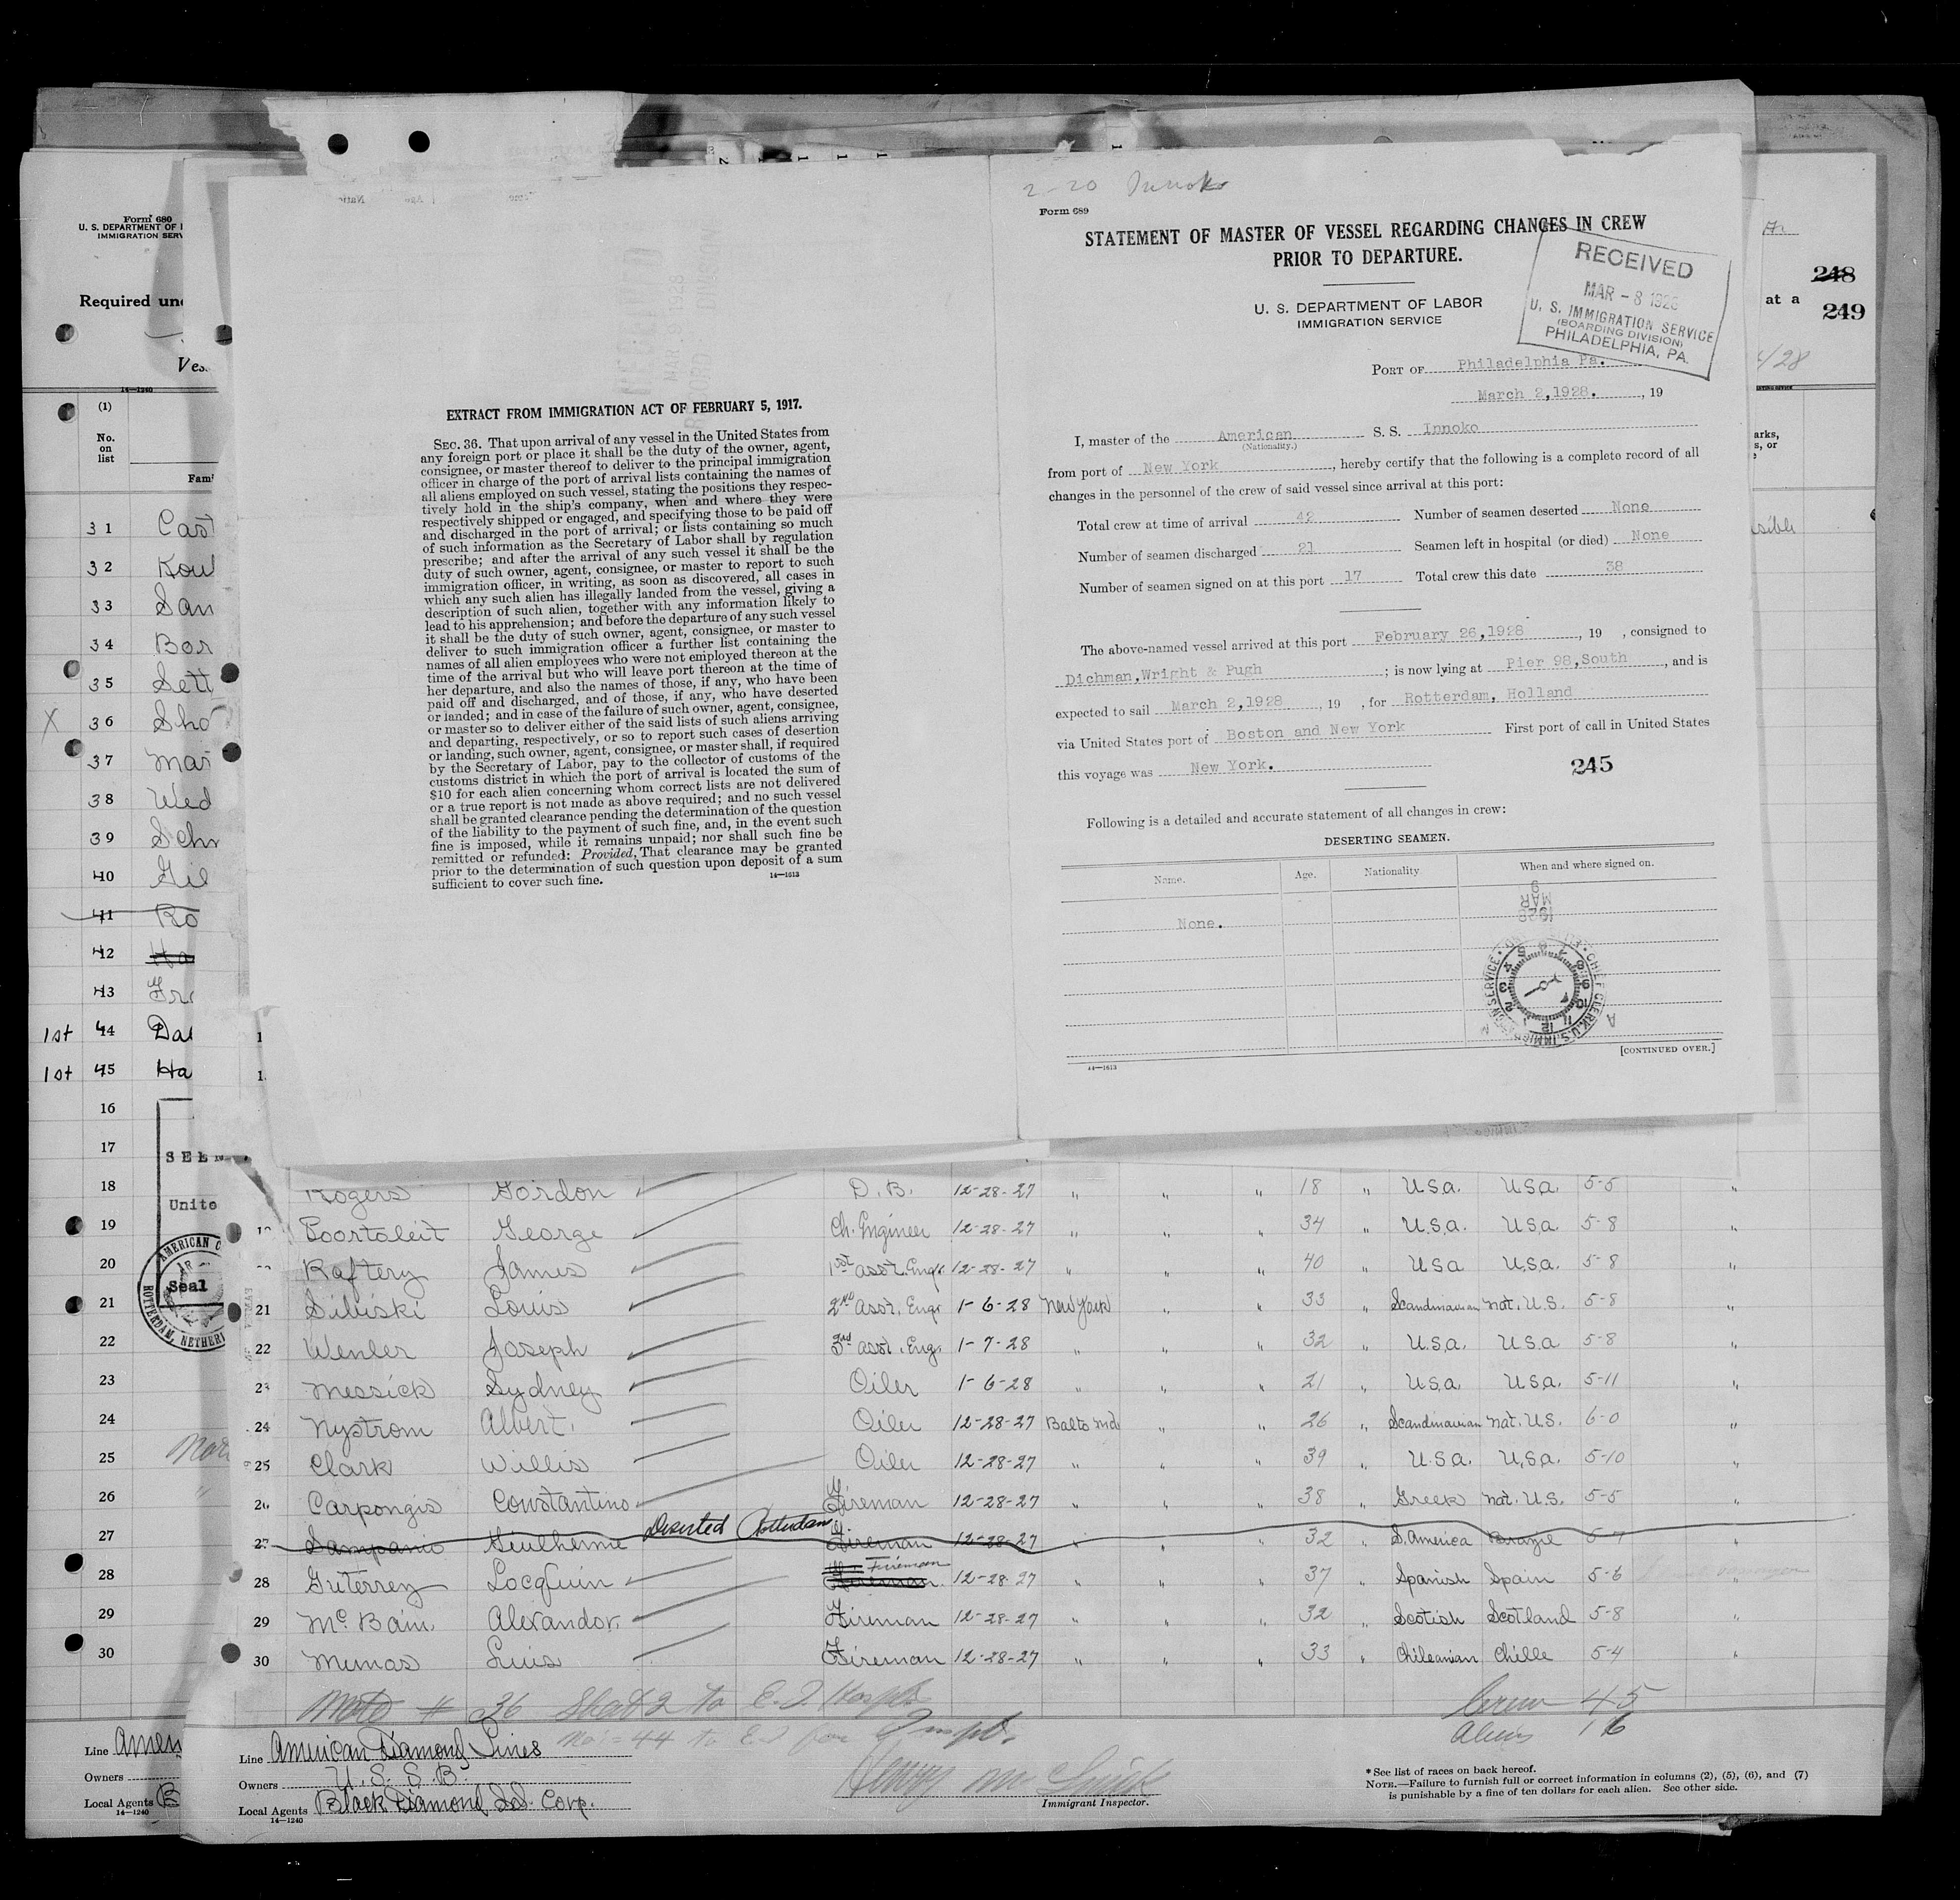 2-20 Innoko
Form 689
STATEMENT OF MASTER OF VESSEL REGARDING CHANGES IN CREW
PRIOR TO DEPARTURE.
U. S. DEPARTMENT OF LABOR
IMMIGRATION SERVICE
RECEIVED
MAR - 8 1928
U. S. IMMIGRATION SERVICE
(BOARDING DIVISION)
PHILADELPHIA, PA.
PORT OF Philadelphia Pa.
March 2,1928. , 19
I, master of the American S. S. Innoko
(Nationality.)
from port of New York , hereby certify that the following is a complete record of all
changes in the personnel of the crew of said vessel since arrival at this port:
Total crew at time of arrival 42 Number of seamen deserted None
Number of seamen discharged 21 Seamen left in hospital (or died) None
Number of seamen signed on at this port 17 Total crew this date 38
The above-named vessel arrived at this port February 26,1928 , 19 , consigned to
Dichman,Wright & Pugh ; is now lying at Pier 98,South , and is
expected to sail March 2,1928 , 19 , for Rotterdam, Holland
via United States port of Boston and New York First port of call in United States
this voyage was New York.
245
Following is a detailed and accurate statement of all changes in crew:
DESERTING SEAMEN.
Name. Age. Nationality When and where signed on.
None.
[CONTINUED OVER.]
14—1613
EXTRACT FROM IMMIGRATION ACT OF FEBRUARY 5, 1917.
SEC. 36. That upon arrival of any vessel in the United States from
any foreign port or place it shall be the duty of the owner, agent,
consignee, or master thereof to deliver to the principal immigration
officer in charge of the port of arrival lists containing the names of
all aliens employed on such vessel, stating the positions they respec-
tively hold in the ship's company, when and where they were
respectively shipped or engaged, and specifying those to be paid off
and discharged in the port of arrival; or lists containing so much
of such information as the Secretary of Labor shall by regulation
prescribe; and after the arrival of any such vessel it shall be the
duty of such owner, agent, consignee, or master to report to such
immigration officer, in writing, as soon as discovered, all cases in
which any such alien has illegally landed from the vessel, giving a
description of such alien, together with any information likely to
lead to his apprehension; and before the departure of any such vessel
it shall be the duty of such owner, agent, consignee, or master to
deliver to such immigration officer a further list containing the
names of all alien employees who were not employed thereon at the
time of the arrival but who will leave port thereon at the time of
her departure, and also the names of those, if any, who have been
paid off and discharged, and of those, if any, who have deserted
or landed; and in case of the failure of such owner, agent, consignee,
or master so to deliver either of the said lists of such aliens arriving
and departing, respectively, or so to report such cases of desertion
or landing, such owner, agent, consignee, or master shall, if required
by the Secretary of Labor, pay to the collector of customs of the
customs district in which the port of arrival is located the sum of
$10 for each alien concerning whom correct lists are not delivered
or a true report is not made as above required; and no such vessel
shall be granted clearance pending the determination of the question
of the liability to the payment of such fine, and, in the event such
fine is imposed, while it remains unpaid; nor shall such fine be
remitted or refunded: Provided, That clearance may be granted
prior to the determination of such question upon deposit of a sum
sufficient to cover such fine.
14—1613
Form 680
U. S. DEPARTMENT OF
IMMIGRATION SERV
Required und
Ves
14—1240
(1)
No.
on
list
Fam
at a
248
249
31 Cast
32 Koul
33 San
34 Bor
35 Sett
X 36 Sho
37 Mar
38 Wed
39 Schr
40 Gil
41 Ro
42 Ha
43 Fra
1st 44 Dal
1st 45 Ha
16
17
SEEN
Unite
AMERICAN C
Seal
ROTTERDAM, NETHER
18 Rogers Gordon D. B. 12-28-27 " " " 18 " U.S.A. U.S.A. 5-5 "
19 Poortaleit George Ch. Engineer 12-28-27 " " " 34 " U.S.A. U.S.A. 5-8 "
20 Raftery James 1st asst. Engr 12-28-27 " " " 40 " U.S.A. U.S.A. 5-8 "
21 Sibiski Louis 2nd asst. Engr 1-6-28 New York " " 33 " Scandinavian nat. U.S. 5-8 "
22 Wenler Joseph 3rd asst. Engr 1-7-28 " " " 32 " U.S.A. U.S.A 5-8 "
23 Messick Sydney Oiler 1-6-28 " " " 21 " U.S.A. U.S.A. 5-11 "
24 Nystrom Albert Oiler 12-28-27 Balto Md " " 26 " Scandinavian nat. U.S. 6-0 "
25 Clark Willis Oiler 12-28-27 " " " 39 " U.S.A. U.S.A. 5-10 "
26 Carpongis Constantino Fireman 12-28-27 " " " 38 " Greek nat. U.S. 5-5 "
Deserted Rotterdam
27 Sampanio Guilherme Fireman 12-28-27 " " " 32 " S. America Brazil 5-7 "
28 Guterrez Locquin Fireman 12-28-27 " " " 37 " Spanish Spain 5-6 "
29 Mc Bain. Alexandor. Fireman 12-28-27 " " " 32 " Scotish Scotland 5-8 "
30 Mumas Luis Fireman 12-28-27 " " " 33 " Chileanian Chille 5-4 "
# 36 Sheet 2 to E. I. Hospl.
Crew 45
Aliens 16
Line American Diamond Lines
Owners U. S. S. B.
Local Agents Black Diamond S.S. Corp.
14—1240
Immigrant Inspector.
*See list of races on back hereof.
NOTE.—Failure to furnish full or correct information in columns (2), (5), (6), and (7)
is punishable by a fine of ten dollars for each alien. See other side.
Line Amer
Owners
Local Agents B
14—1240